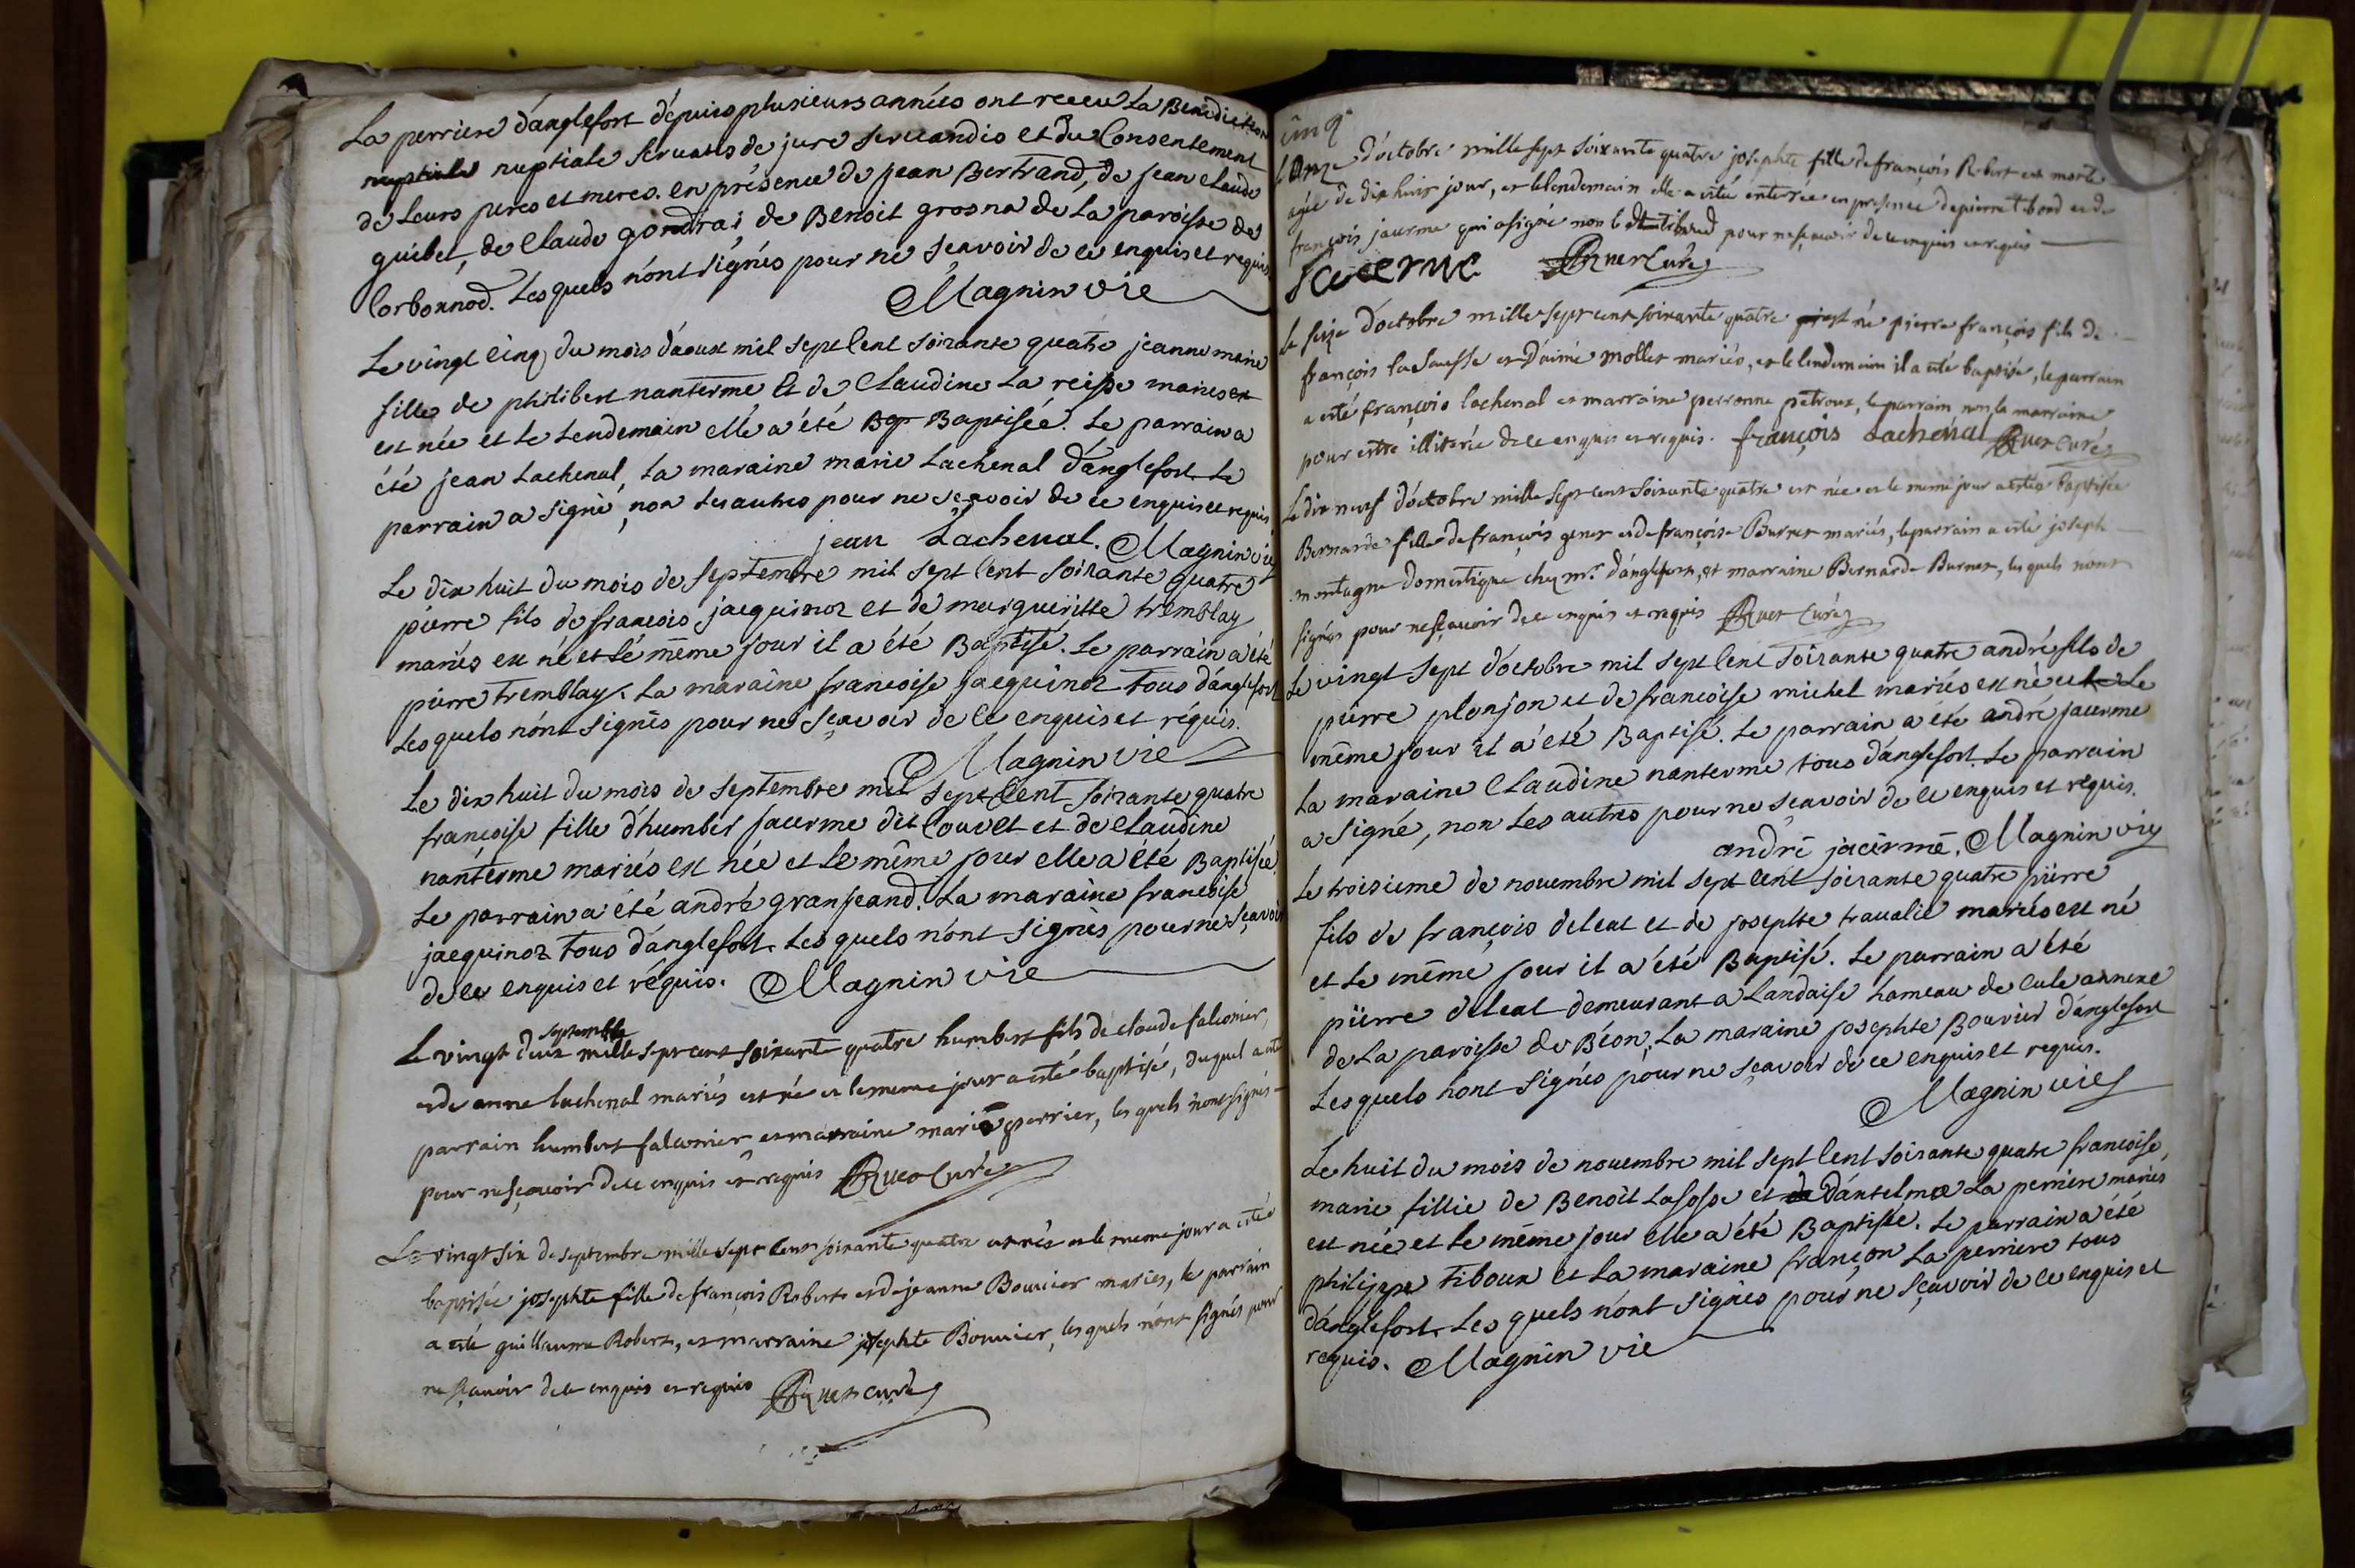 La perriere d'anglefort dépuis plusieurs annéés ont receu La Benediction
nuptiale nuptiale servatis de jure servandis et du Consentement
de Leurs peres et meres. en présence de jean Bertrand, de jean claude
guibet, de Claude gondrai de Benoit grosna de La paroisse de
Corbonnod. Lesquels n'ont signés pour ne sçavoir de ce enquis et requis
Magnin vie
Le vingt cinq du mois d'aoust mil sept Cent soixante quatre jeanne marie
fille de philibert nanterme Et de Claudine La reisse mariés
est née et le Lendemain elle a été Bap Baptisée. Le parrain a
été jean Lachenal, La maraine marie Lachenal d'anglefort. Le
parrain a signé, non Les autres pour ne sçavoir de ce enquis et requis
jean Lachenal. Magnin vie
Le dix huit du mois de septembre mil sept Cent soixante quatre
pierre fils de françois jacquinoz et de margueritte tremblay
mariés est né et Le même jour il a été Baptisé. Le parrain a été
pierre tremblay. La maraine françoise jacquinoz tous d'anglefort
Lesquels n'ont signés pour ne sçavoir de ce enquis et réquis.
Magnin vie
Le dix huit du mois de septembre mil sept Cent soixante quatre
françoise fille d'humber jacerme dit Couvet et de Claudine
nanterme mariés est née et Le même jour elle a été Baptisée
Le parrain a été andré granjeand. La maraine françoise
jacquinoz tous d'anglefort. Lesquels n'ont signés pour ne sçavoir
de ce enquis et réquis. Magnin vie
septembre
Le vingt deux mille sept cent soixante quatre humbert fils de claude falconier,
et de anne lachenal mariés est né et le meme jour a esté baptisé, duquel a esté
parrain humbert falconier et marraine marie perrier, les quels n'ont signés
pour ne sçavoir de ce enquis et requis Curé
Le vingt six de septembre mille sept cent soixante quatre est née et le meme jour a estée
baptisée josephte fille de françois Robert et de jeanne Bouvier mariés, le parrain
a esté guillaume Robert, et marraine josephte Bouvier, les quels n'ont signés pour
ne sçavoir de ce enquis et requis curé
d'octobre mille sept soixante quatre josephte fille de françois Robert est morte
agée de dix huit jour, et le lendemain elle a estée enterrée en presence de pierre tiboud et de
françois jacerme qui a signé non le dt tiboud pour ne sçavoir de ce enquis et requis
Jacerme Curé
Le seize d'octobre mille sept cent soixante quatre est né pierre françois fils de
françois la sausse et d'aimé mollet mariés, et le lendemain il a esté baptisé, le parrain
a esté françois lachenal et marraine perronne petroux, le parrain non la marraine
pour estre illiterée de ce enquis et requis. françois Lachenal Curé
Le dix neuf d'octobre mille sept cent soixante quatre est née et le meme jour a estée baptisée
Bernarde fille de françois genet et de françoise Burnet mariés, le parrain a esté joseph
montagne domestique chez mr. d'anglefort, et marraine Bernarde Burnet, les quels n'ont
signés pour ne sçavoir de ce enquis et requis Curé
Le vingt sept d'octobre mil sept Cent soixante quatre andré fils de
pierre plonjon et de françoise michel mariés est né et le Le
même jour il a été Baptisé. Le parrain a été andré jacerme
La maraine Claudine nanterme tous d'anglefort. Le parrain
a signé, non Les autres pour ne sçavoir de ce enquis et requis.
andré jacermé. Magnin vie
Le troisieme de novembre mil sept Cent soixante quatre pierre
fils de françois deleat et de josephte travalié mariés est né
et Le même jour il a été Baptisé. Le parrain a été
pierre deleat demeurant a Landaise hameau de Cule annexe
de La paroisse de Béon, La maraine josephte Bouvier d'anglefort
Lesquels n'ont signés pour ne sçavoir de ce enquis et requis.
Magnin vie
Le huit du mois de novembre mil sept Cent soixante quatre françoise,
marie fillie de Benoit Lasosse et de d'antelme La perriere mariés
est née et Le même jour elle a été Baptisée. Le parrain a été
philippe Tiboux et La maraine françon La perriere tous
d'anglefort. Lesquels n'ont signés pour ne sçavoir de ce enquis et
requis. Magnin vie